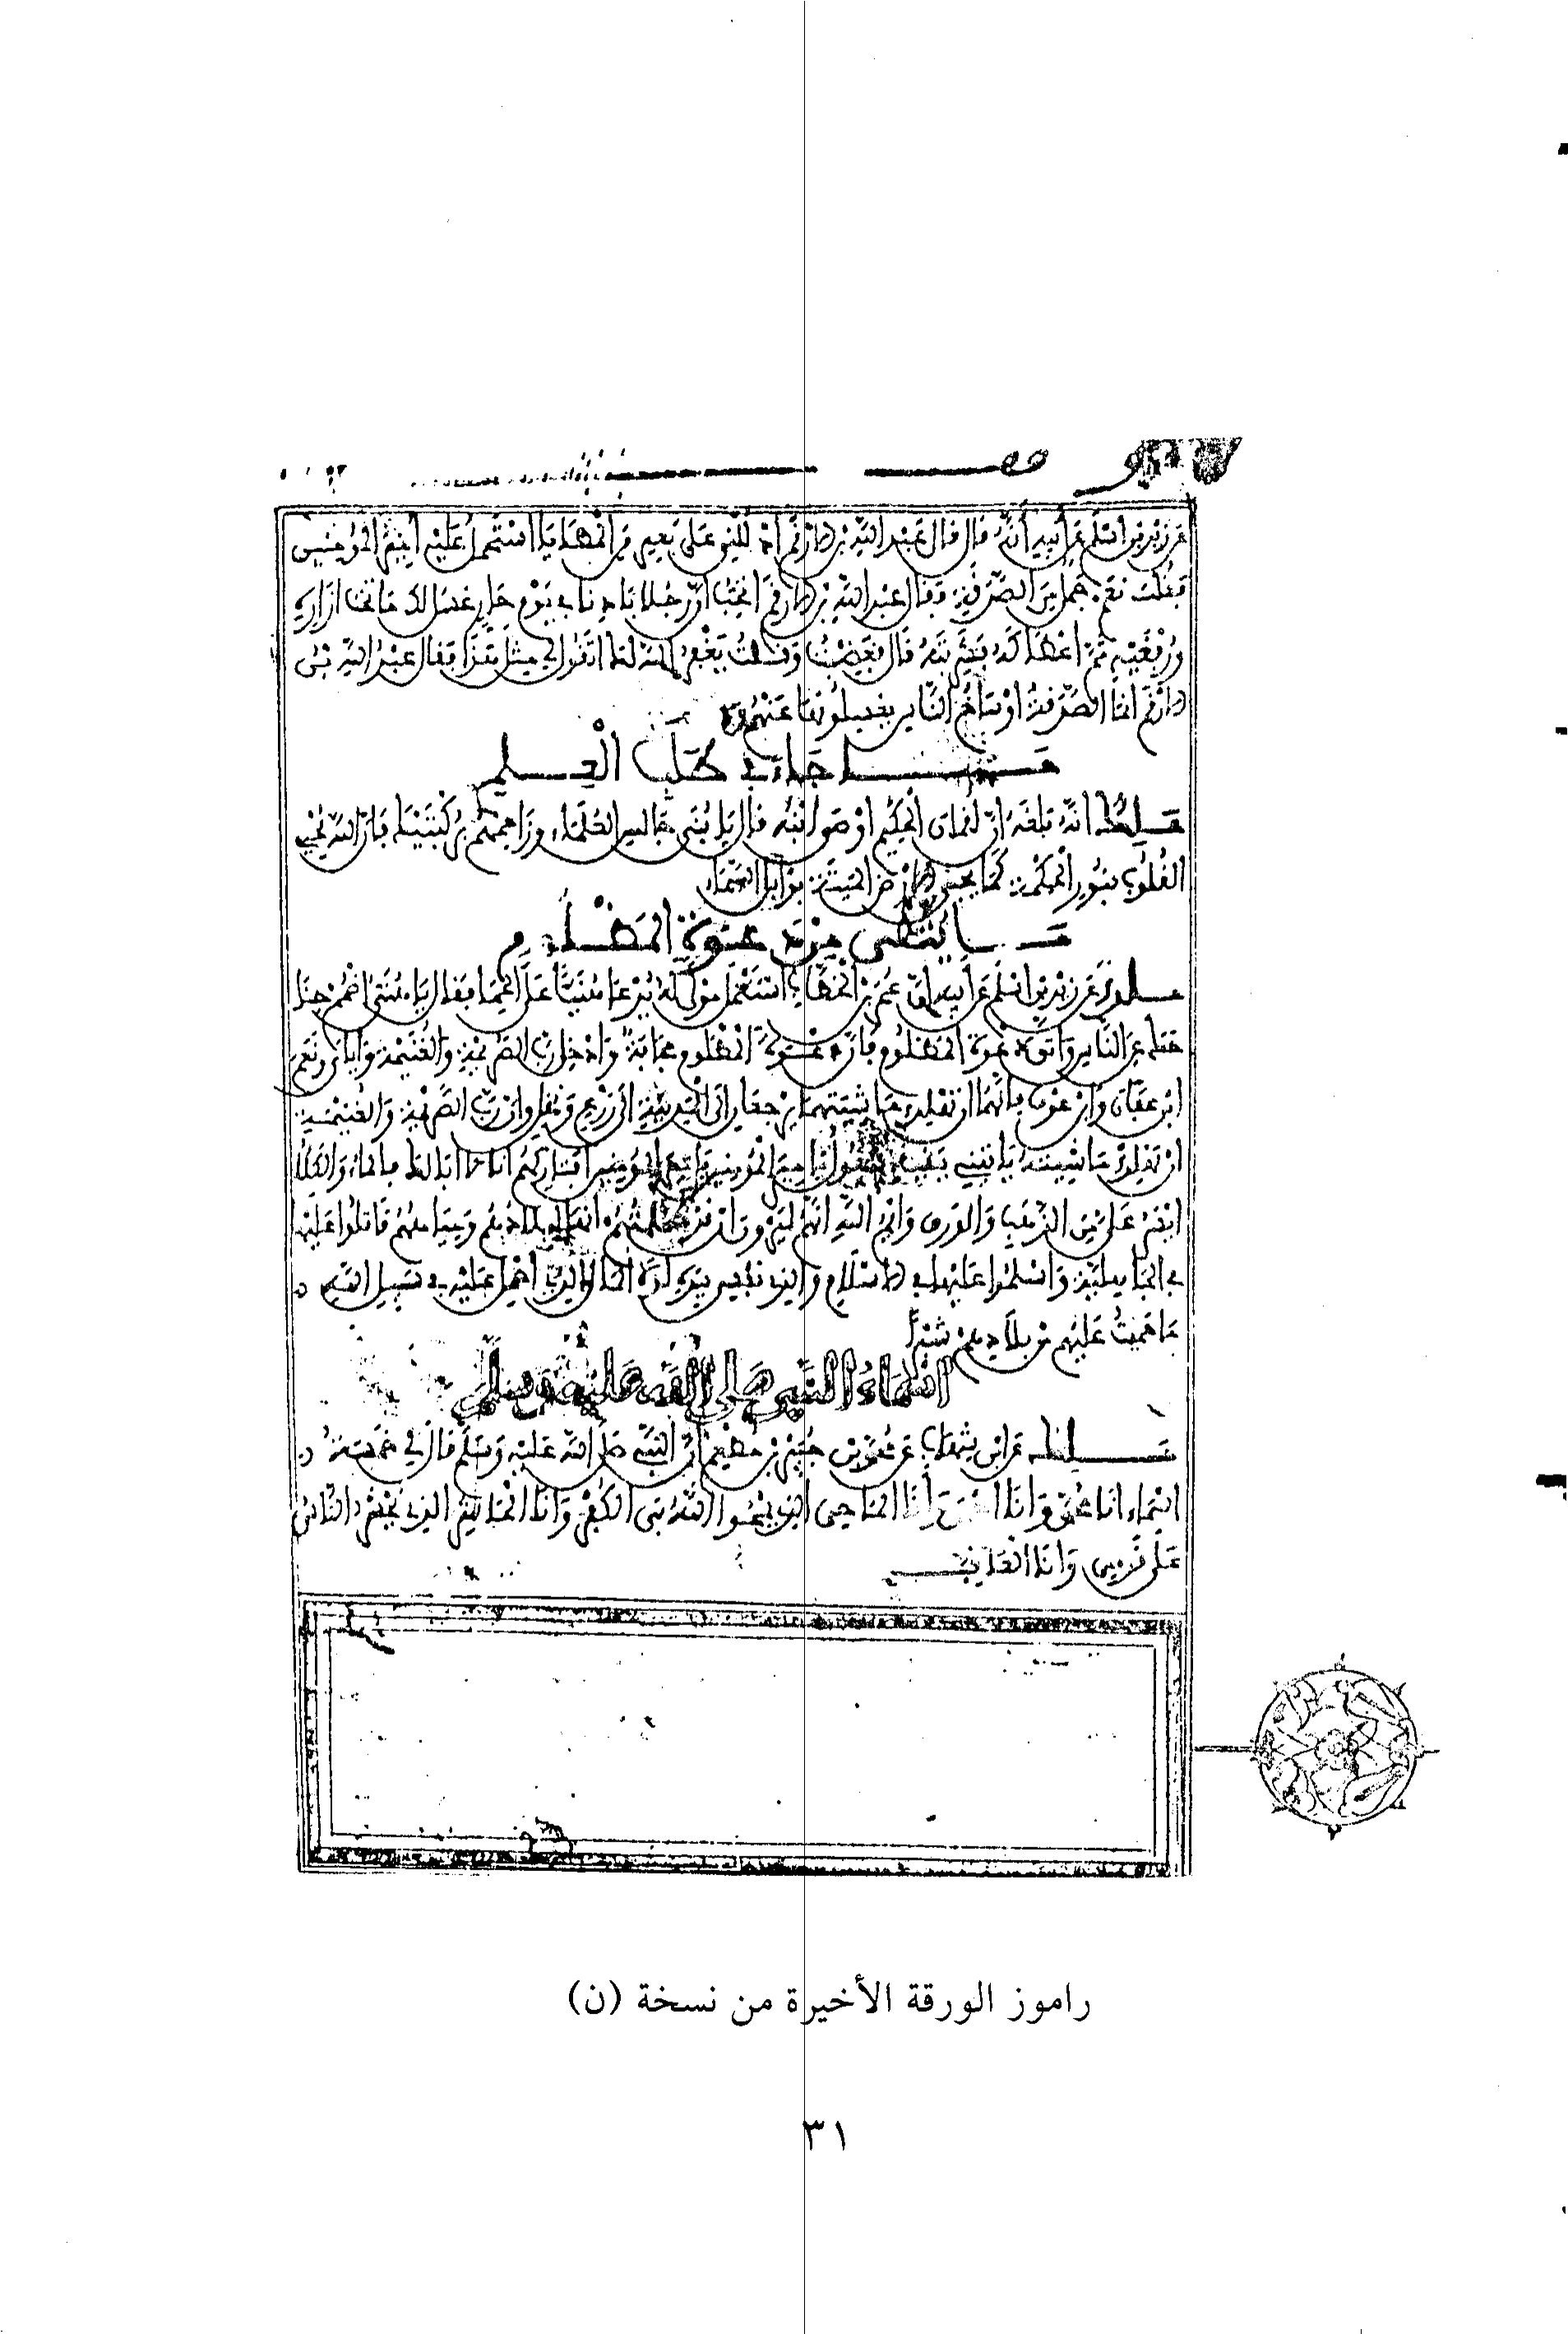 عن زيد بن اسلم عن أبيه أنه قال قال عبد الله بن الارقم ادللني على بعير من المطايا استحمل عليه أمير المومنين
فقلت نعم جمل من الصدقة فقال عبد الله بن الارقم اتحب ان رجلا بادنا في يوم حار غسل لك ما تحت ازاره
ورفغيه ثم اعطاكه فشربته قال فغضبت وقلت يغفر الله لك اتقول لي مثل هذا فقال عبد الله بن
الارقم انما الصدقة اوساخ الناس يغسلونها عنهم
ما جاء في طلب العلم
ملك انه بلغه ان لقمان الحكيم اوصى ابنه فقال يا بني جالس العلماء وزاحمهم بركبتيك فان الله يحيي
القلوب بنور الحكمة كما يحيي الارض الميتة بوابل السماء
ما يتقى من دعوة المظلوم
ملك عن زيد بن اسلم عن أبيه ان عمر بن الخطاب استعمل مولى له يدعى هنيا على الحمى فقال يا هني اضمم جناحك
عن الناس واتق دعوة المظلوم فان دعوة المظلوم مجابة وادخل رب الصريمة والغنيمة واياي ونعم
ابن عفان وابن عوف فانهما ان تهلك ماشيتهما يرجعان الى المدينة الى زرع ونخل وان رب الصريمة والغنيمة
ان تهلك ماشيته ياتيني ببنيه فيقول يا امير المومنين يا امير المومنين افتاركهم انا لا ابا لك فالماء والكلأ
ايسر علي من الذهب والورق وايم الله انهم ليرون ان قد ظلمتهم انها لبلادهم ومياههم قاتلوا عليها
في الجاهلية واسلموا عليها في الاسلام والذي نفسي بيده لولا المال الذي احمل عليه في سبيل الله
ما حميت عليهم من بلادهم شبرا
اسماء النبي صلى الله عليه وسلم
ملك عن ابن شهاب عن محمد بن جبير بن مطعم ان النبي صلى الله عليه وسلم قال لي خمسة
اسماء انا محمد وانا احمد وأنا الماحي الذي يمحوا الله بي الكفر وانا الحاشر الذي يحشر الناس
على قدمي وانا العاقب
راموز الورقة الأخيرة من نسخة (ن)
٣١